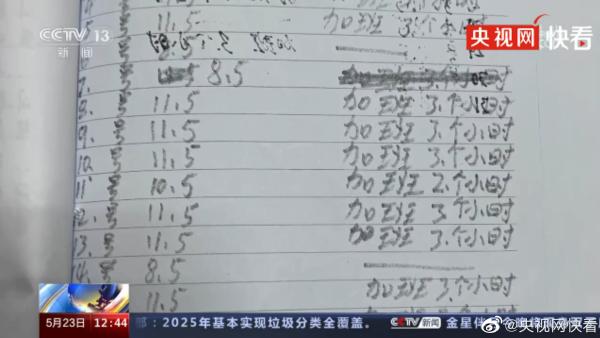 CCTV 13
新闻
央视网 快看
11.5 加班 3.个小时
8.5 加班 3.个小时
8. 11.5 加班 3.个小时
9. 11.5 加班 3.个小时
10. 11.5 加班 3.个小时
11 10.5 加班 2.个小时
12. 11.5 加班 3.个小时
13. 11.5 加班 3.个小时
14. 8.5
11.5 加班 3.个小时
5月23日 12:44 部：2025年基本实现垃圾分类全覆盖。 CCTV 新闻 金星伴
@央视网快看